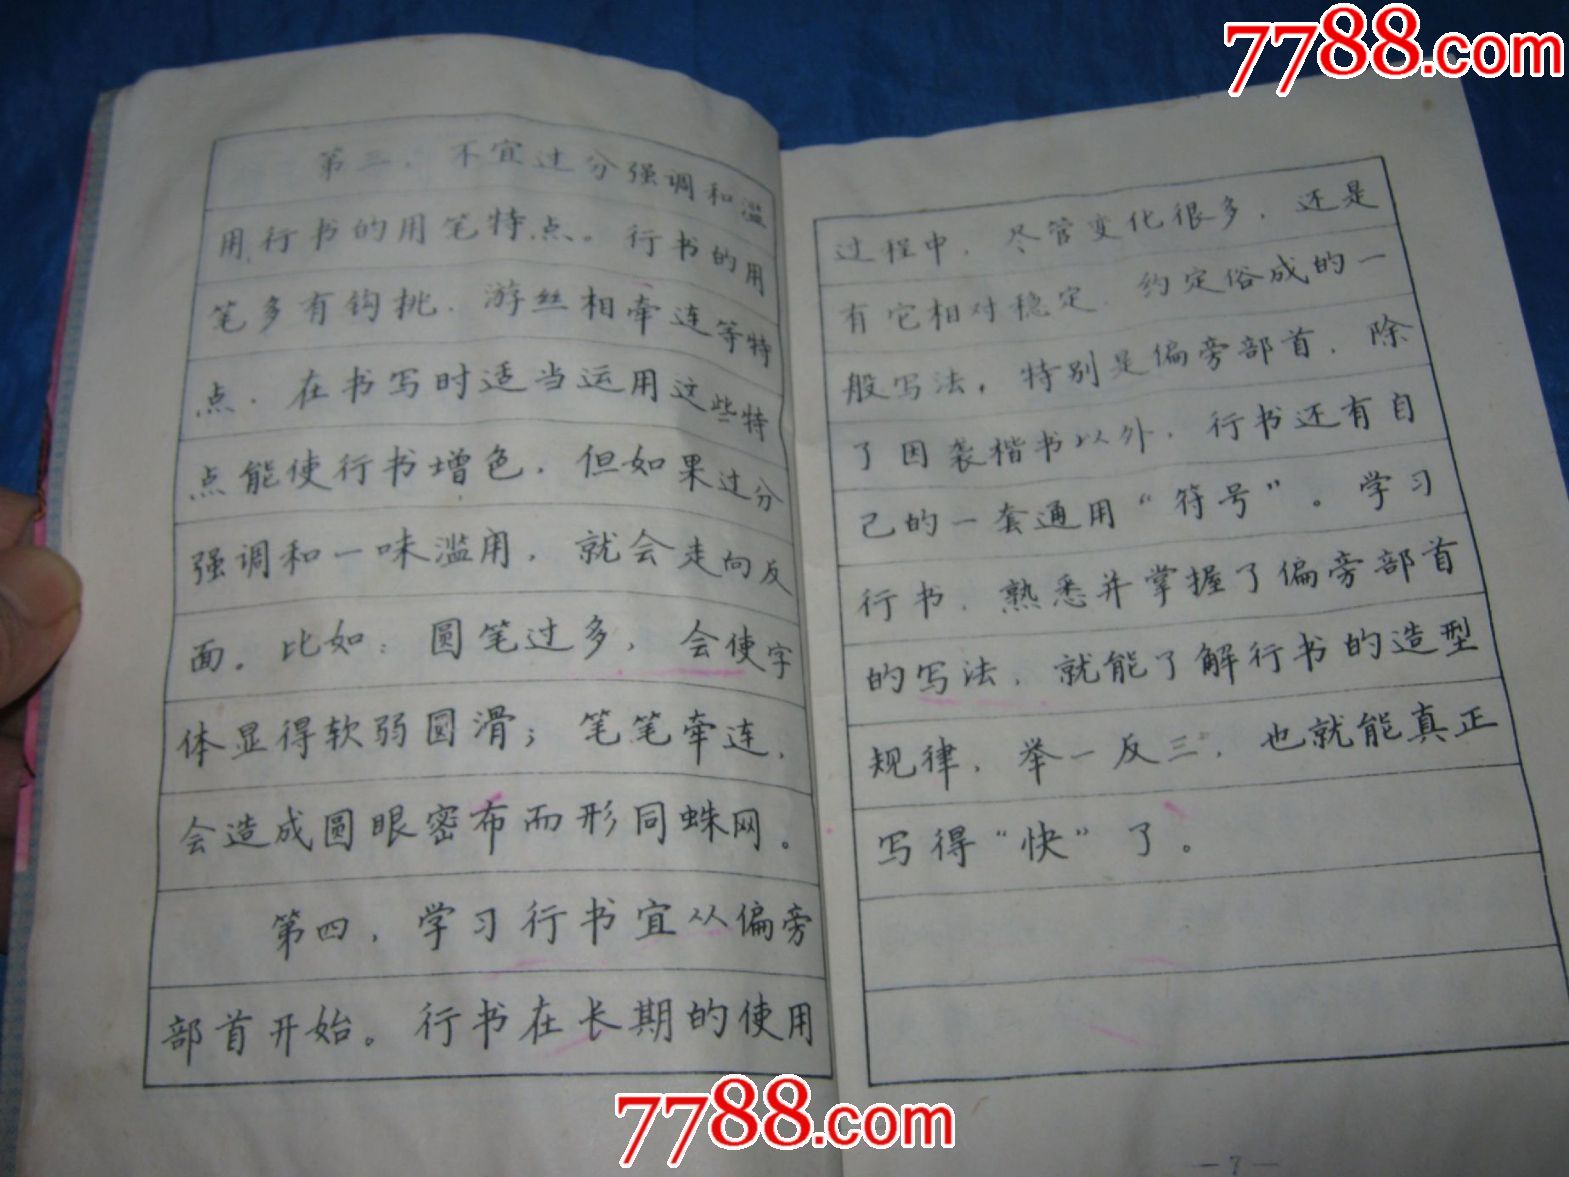 7788.com
第三，不宜过分强调和滥
用行书的用笔特点。行书的用
笔多有钩挑、游丝相牵连等特
点，在书写时适当运用这些特
点能使行书增色，但如果过分
强调和一味滥用，就会走向反
面。比如：圆笔过多，会使字
体显得软弱圆滑；笔笔牵连，
会造成圆眼密布而形同蛛网。
第四，学习行书宜从偏旁
部首开始。行书在长期的使用
过程中，尽管变化很多，还是
有它相对稳定、约定俗成的一
般写法，特别是偏旁部首，除
了因袭楷书以外，行书还有自
己的一套通用“符号”。学习
行书，熟悉并掌握了偏旁部首
的写法，就能了解行书的造型
规律，举一反三，也就能真正
写得“快”了。
—7—
7788.com